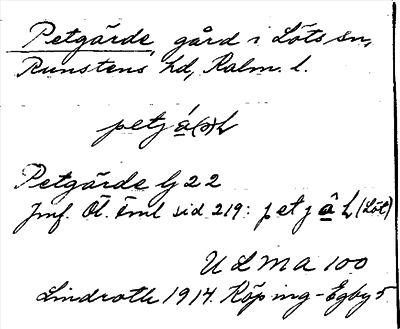 Petgärde, gård i Löts sn,
Runstens hd, Kalm. l.
petjá(ə)ƚ
Petgärde lj 22
Jmf. Öl. Fml sid 219: petjâƚ (Löt)
ULMA 100
Lindroth 1914. Köping-Egby 5